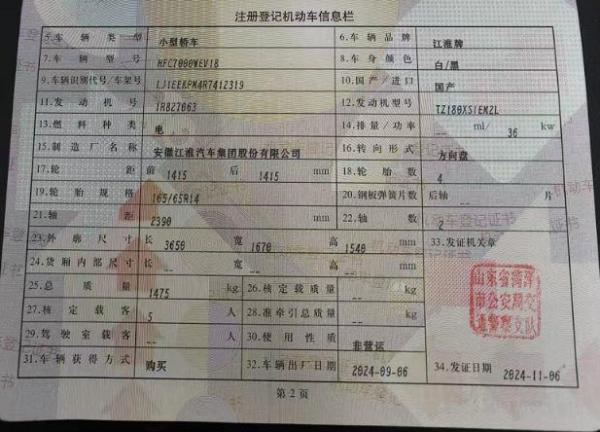 注册登记机动车信息栏
5.车辆类型 小型轿车 6.车辆品牌 江淮牌
7.车辆型号 HFC7000WEV18 8.车身颜色 白/黑
9.车辆识别代号/车架号 LJ1EEKPM4R7412319 10.国产/进口 国产
11.发动机号 1R827063 12.发动机型号 TZ180XS1EM2L
13.燃料种类 电 14.排量/功率 -- ml/ 36 kw
15.制造厂名称 安徽江淮汽车集团股份有限公司 16.转向形式 方向盘
17.轮距 前 1415 后 1415 mm 18.轮胎数 4
19.轮胎规格 165/65R14 20.钢板弹簧片数 后轴 -- 片
21.轴距 2390 mm 22.轴数 2
23.外廓尺寸 长 3650 宽 1670 高 1540 mm 33.发证机关章
24.货厢内部尺寸 长 -- 宽 -- 高 -- mm
25.总质量 1475 kg 26.核定载质量 -- kg
27.核定载客 5 人 28.准牵引总质量 -- kg
29.驾驶室载客 -- 人 30.使用性质 非营运
31.车辆获得方式 购买 32.车辆出厂日期 2024-09-06 34.发证日期 2024-11-06
第2页